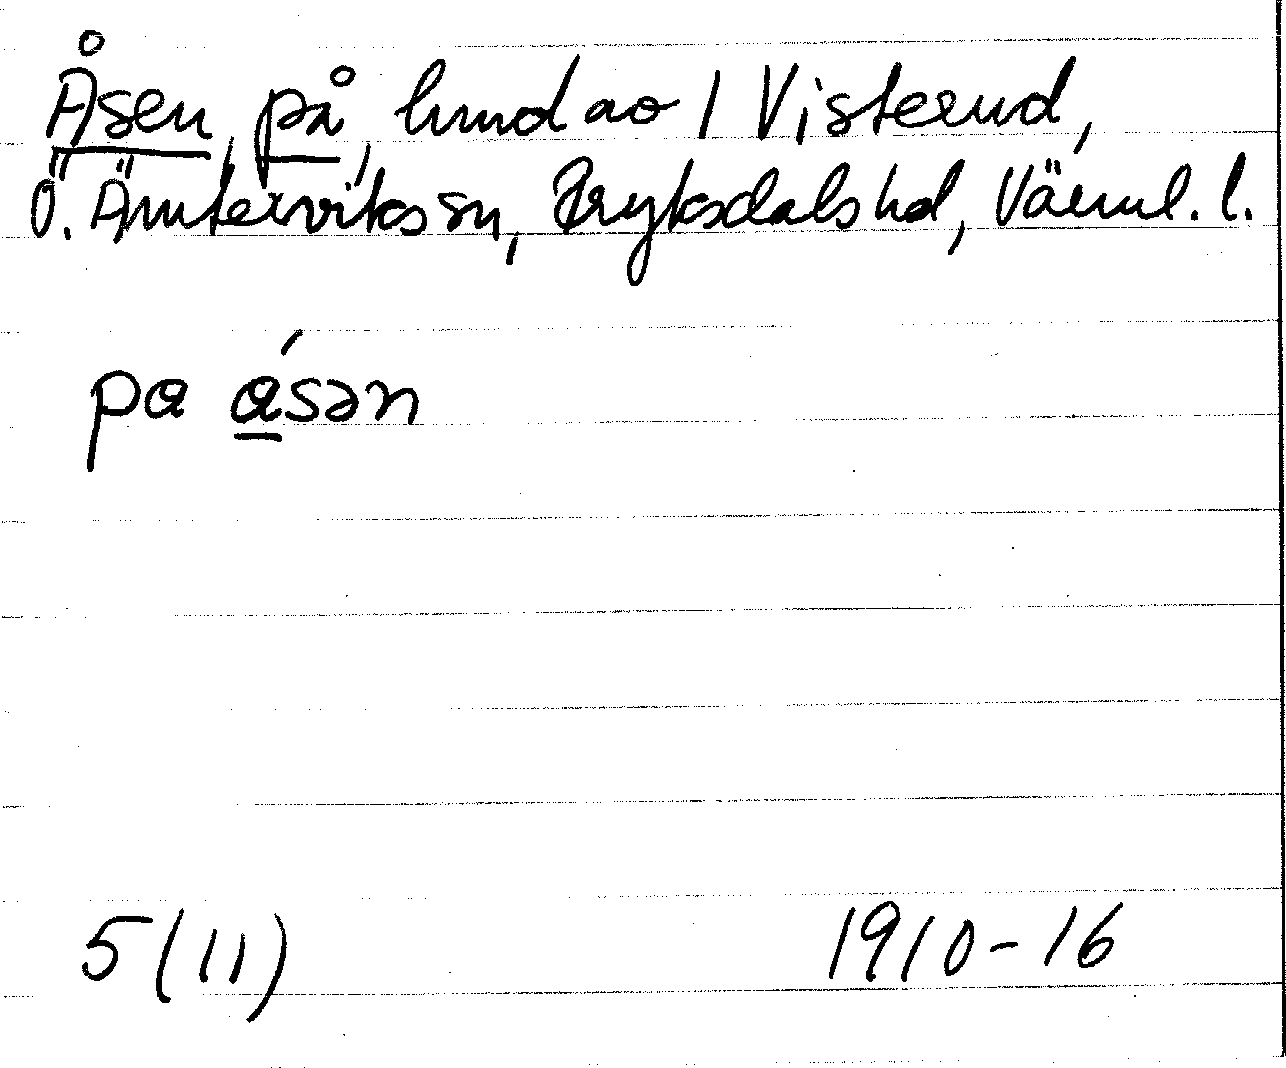 Åsen, på, lund ao / Visterud,
Ö. Ämterviks sn, Fryksdals hd, Värml. l.
pa ásən
5(11) 1910-16